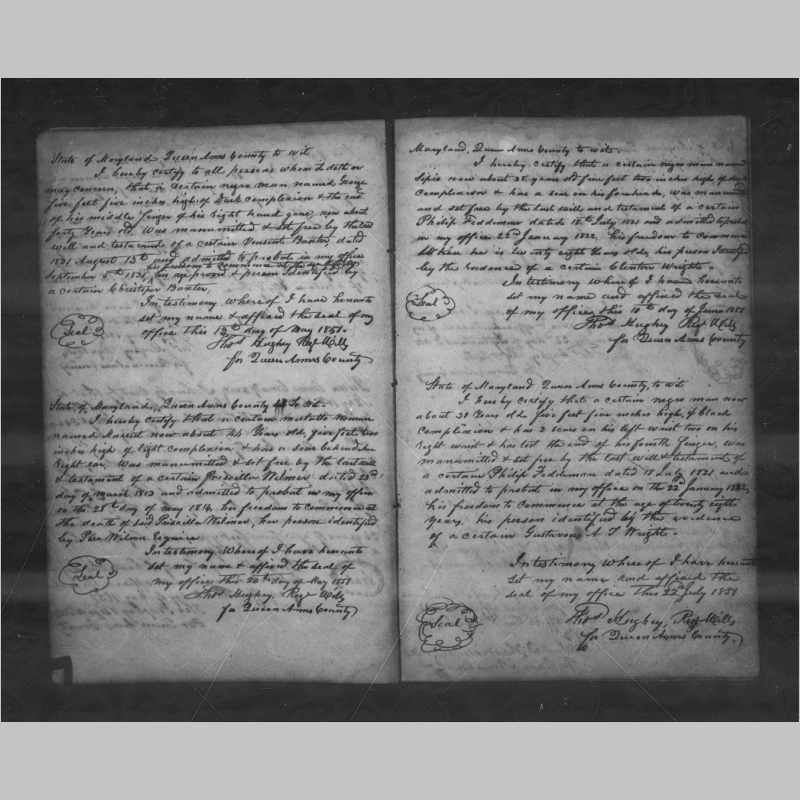 State of Maryland Queen Anns County to wit
I hereby certify to all persons whom it doth or
may concern, that a certain negro man named George
five feet five inches high, of Dark complexion & the end
of his middle finger of his right hand gone, now about
forty Years old. Was manumitted & set free by the last
will and testamente of a certain Vinsent Baxter dated
1821 August 13th and admitted to probate in my office
his freedom to commence at the
September 5th 1821, his age proved & person identified by
a certain Christoper Baxter,
In testimony whereof I have hereunto
set my name & affixed the seal of my
office this 13th day of May 1851.
Seal
Thos Hughey Reg Wills
for Queen Anns County
State of Maryland, Queen Anns County to wit.
I hereby certify that a certain mulatto woman
named Harriet now about 43 Years old, five feet two
inches high of light complexion & has a scar behind her
right ear, was manumitted & set free by the last will
& testament of a certain Priscilla Wilmer dated 23rd
day of March 1813 and admitted to probate in my office
on the 25th day of may 1814, her freedom to commence at
the death of said Priscilla Wilmer, her person identified
by Pere Wilmer Esquire
In testimony Whereof I have hereunto
set my name & affixed the seal of
my office this 20th day of May 1851
Seal
Thos Hughey, Reg Wills
for Queen Anns County
Maryland, Queen Anns County to wit.
I hereby certify that a certain negro man named
now about 35 years old five feet two inches high, of dark
Complexion & has a scar on his forehead, was manumitted
and set free by the last will and testament of a certain
Philip Feddeman dated 18th July 1821 and admitted to probate
in my office 22nd January 1822, his freedom to commence
when he is twenty eight Years old, his person Identified
by the evidence of a certain Clinton Wright.
In testimony Whereof I have hereunto
set my name and affixed the seal
of my office this 10th day of June 1851
Seal
Thos Hughey Reg Wills
for Queen Anns County
State of Maryland Queen Anns County, to wit.
I hereby certify that a certain negro man now
about 38 Years old, five feet five inches high, of black
Complexion & has 2 scars on his left wrist two on his
right wrist & has lost the end of his fourth finger, was
manumitted & set free by the last will & testament of
a certain Philip Feddeman dated 18 July 1821 and
admitted to probate in my office on the 22nd January 1822,
his freedom to commence at the age of twenty eight
Years, his person identified by the evidence
of a certain Gustavus A T Wright.
In testimony Whereof I have hereunto
set my name and affixed the
seal of my office this 22nd July 1851
Seal
Thos Hughey, Reg Wills
for Queen Anns County.